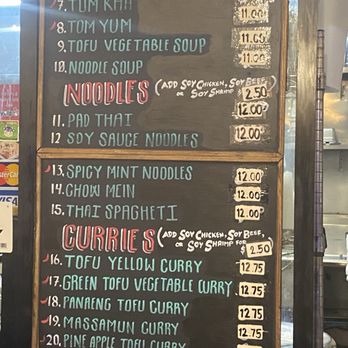 7. TOM KHA 11.00
8. TOM YUM 11.00
9. TOFU VEGETABLE SOUP 11.00
10. NOODLE SOUP 11.00
NOODLES (ADD SOY CHICKEN, SOY BEEF, OR SOY SHRIMP $2.50
11. PAD THAI 12.00
12 SOY SAUCE NOODLES 12.00
13. SPICY MINT NOODLES 12.00
14. CHOW MEIN 12.00
15. THAI SPAGHETI 12.00
CURRIES (ADD SOY CHICKEN, SOY BEEF, OR SOY SHRIMP FOR $2.50
16. TOFU YELLOW CURRY 12.75
17. GREEN TOFU VEGETABLE CURRY 12.75
18. PANRENG TOFU CURRY 12.75
19. MASSAMUN CURRY 12.75
20. PINE APPLE TOFU CURRY 12.75
VISA